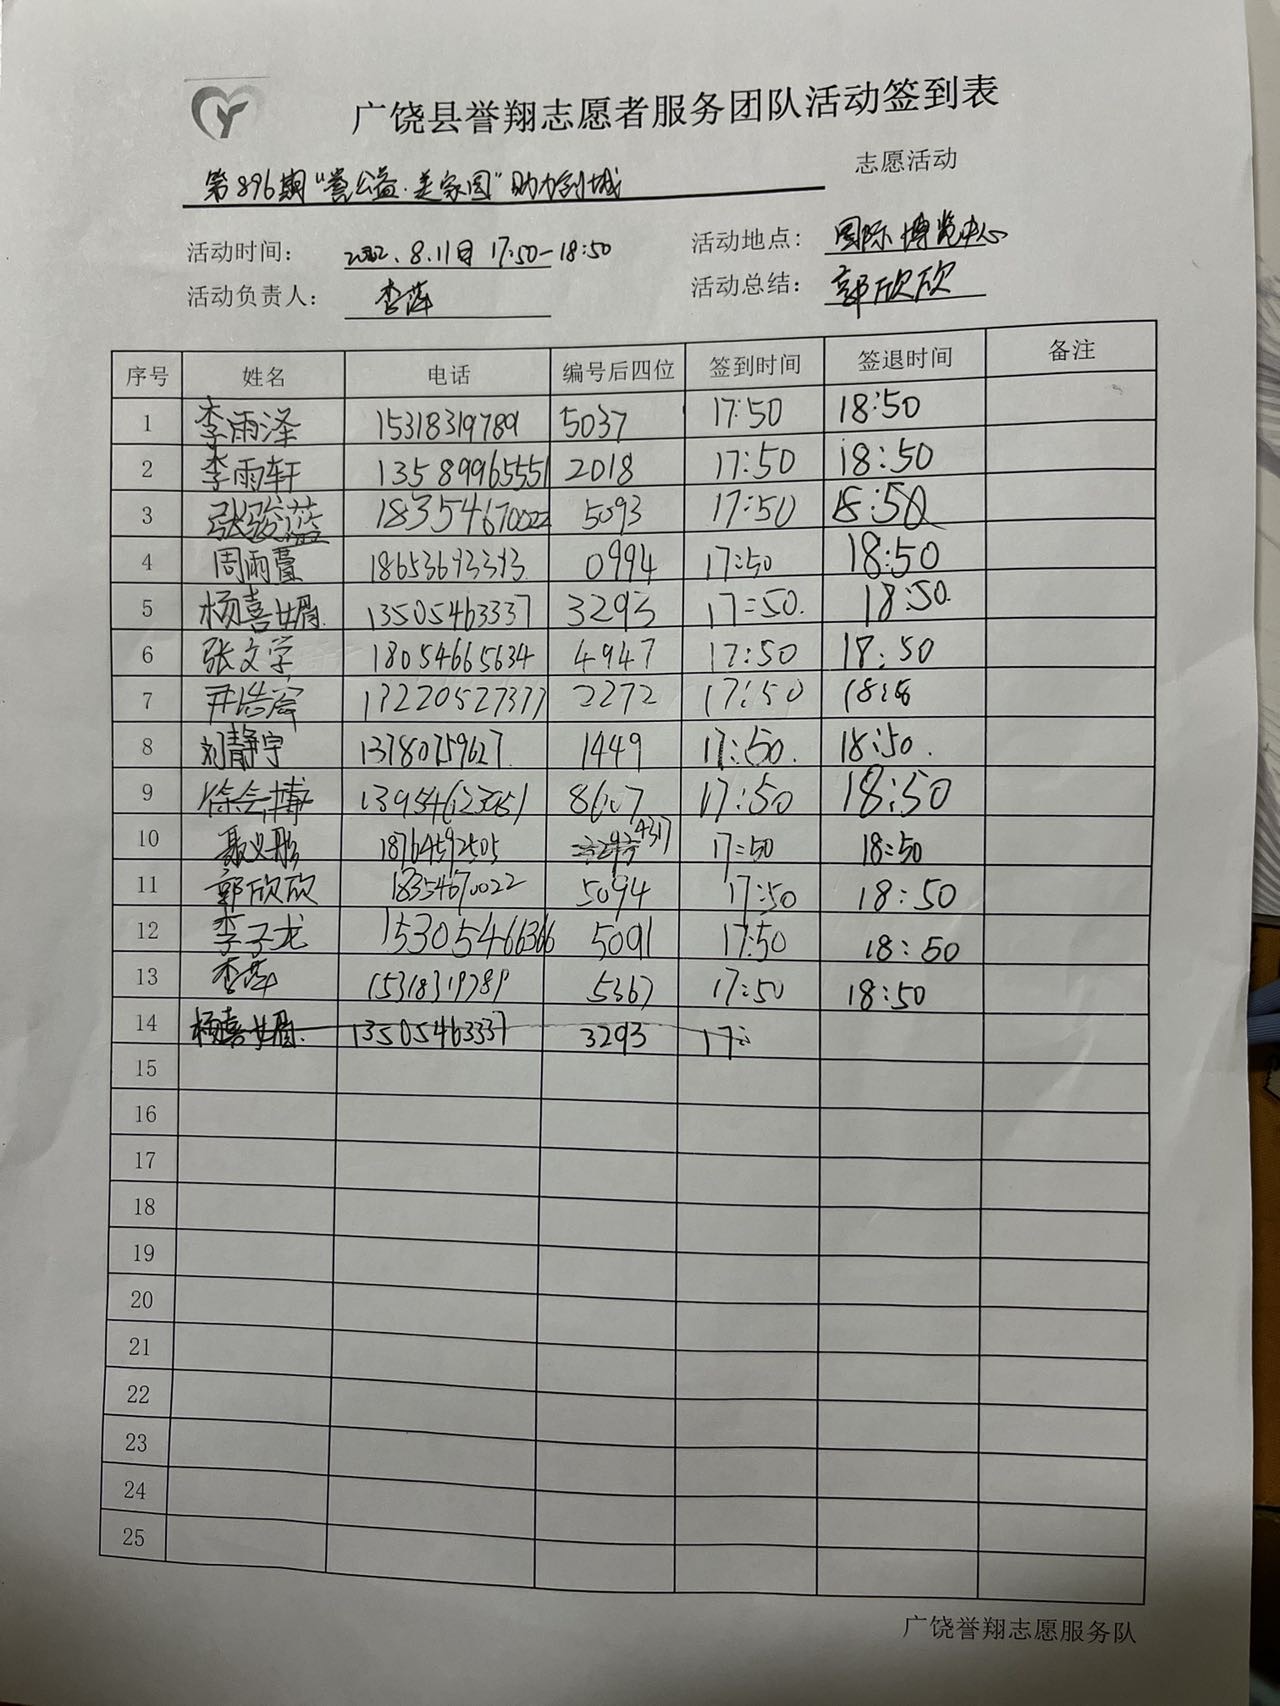 广饶县誉翔志愿者服务团队活动签到表
第896期"誉公益·美家园"助力创城 志愿活动
活动时间： 2022.8.11日 17:50-18:50 活动地点： 国际博览中心
活动负责人： 李萍 活动总结： 郭欣欣
序号 姓名 电话 编号后四位 签到时间 签退时间 备注
1 李雨泽 15318319789 5037 17:50 18:50
2 李雨轩 13589965551 2018 17:50 18:50
3 张骏蓝 18354670022 5093 17:50 18:50
4 周雨萱 0994 17:50 18:50
5 杨喜婿 13505463337 3293 17:50 18:50
6 张文学 18054665634 4947 17:50 18:50
7 2272 17:50
8 刘静宇 13780759627 1449 17:50 18:50
9 徐会博 8607 17:50 18:50
10 聂义彤 18764592505 4317 17:50 18:50
11 郭欣欣 18354670022 5094 17:50 18:50
12 李子龙 15305466366 5091 17:50 18:50
13 李萍 15318319789 5367 17:50 18:50
14 杨喜婿 13505463337 3293 17:
15
16
17
18
19
20
21
22
23
24
25
广饶誉翔志愿服务队